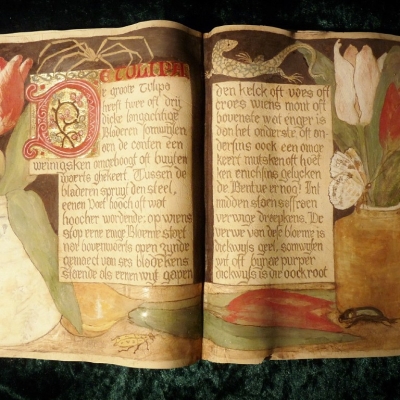 De Tulipa
De groote Tulipa
heeft twee oft drij
dicke langachtige
Bladeren somwijlen
om de canten een
weinigsken omhooch oft buyten
waerts ghekeert. Tussen de
bladeren spruyt den steel,
eenen voet hooch oft wat
hoogher wordende; op wiens
stop eene enige Bloeme staet
nae bovenwaerts open zynde
gemaect van ses bladekens
staende als eenen wijt gapen
den kelck oft vaes oft
croes wiens mont oft
bovenste wat enger is
dan het onderste oft an
derssins oock een omge
keert mutsken oft hoet
en enichsins gelycken
de Bentue er nog? Int
midden staen saffraen
verwige draeykens. De
verwe van dese bloeme is
dickwijs geel, somwijlen
wit oft bijnae purper
dickwijs is die oock root